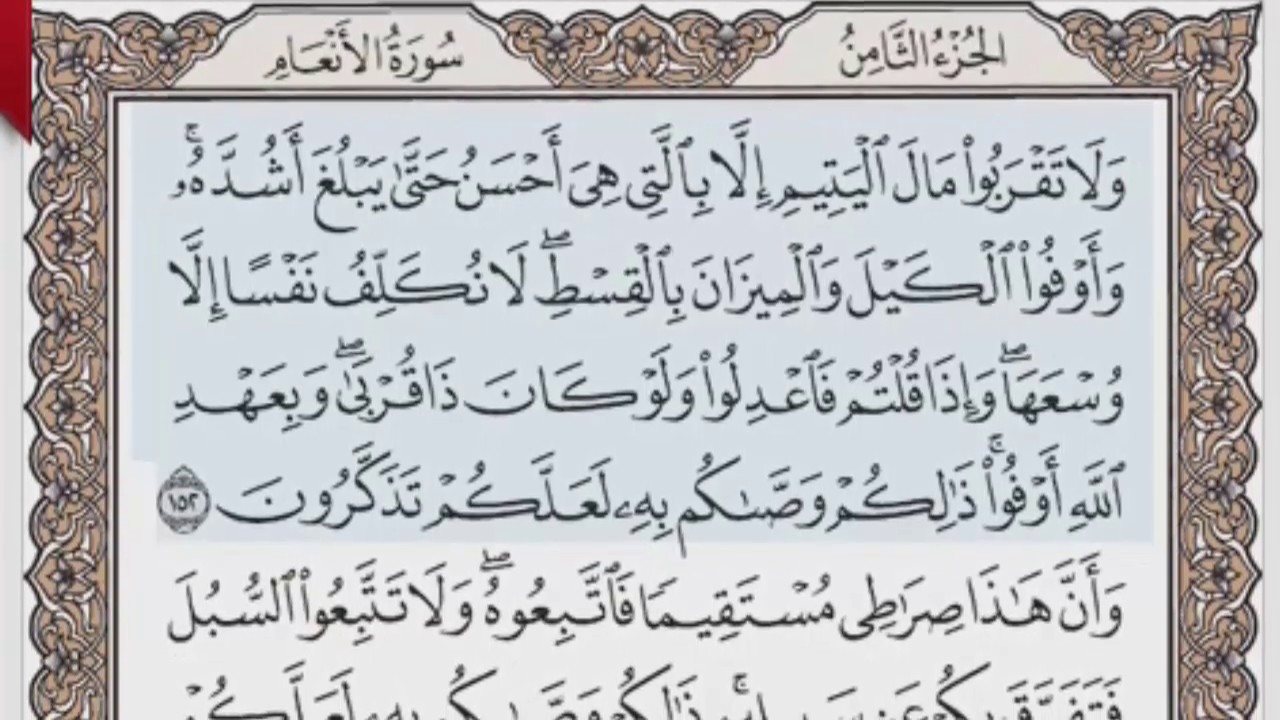 الجُزْءُ الثَّامِنُ
سُورَةُ الأَنْعَامِ
وَلَا تَقْرَبُوا۟ مَالَ ٱلْيَتِيمِ إِلَّا بِٱلَّتِى هِىَ أَحْسَنُ حَتَّىٰ يَبْلُغَ أَشُدَّهُۥۚ
وَأَوْفُوا۟ ٱلْكَيْلَ وَٱلْمِيزَانَ بِٱلْقِسْطِۖ لَا نُكَلِّفُ نَفْسًا إِلَّا
وُسْعَهَاۖ وَإِذَا قُلْتُمْ فَٱعْدِلُوا۟ وَلَوْ كَانَ ذَا قُرْبَىٰۖ وَبِعَهْدِ
ٱللَّهِ أَوْفُوا۟ۚ ذَٰلِكُمْ وَصَّىٰكُم بِهِۦ لَعَلَّكُمْ تَذَكَّرُونَ ١٥٢
وَأَنَّ هَـٰذَا صِرَٰطِى مُسْتَقِيمًا فَٱتَّبِعُوهُۖ وَلَا تَتَّبِعُوا۟ ٱلسُّبُلَ
فَتَفَرَّقَ بِكُمْ عَن سَبِيلِهِۦۚ ذَٰلِكُمْ وَصَّىٰكُم بِهِۦ لَعَلَّكُمْ